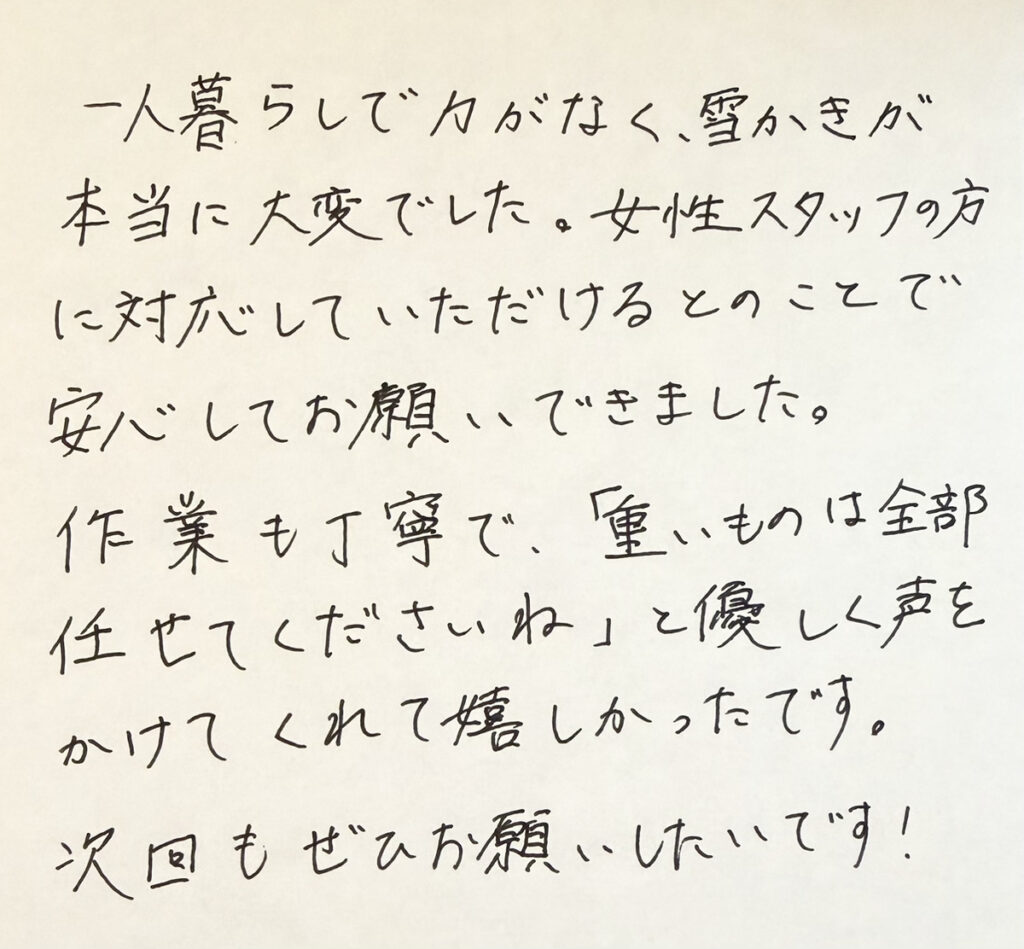 一人暮らしで力がなく、雪かきが
本当に大変でした。女性スタッフの方
に対応していただけるとのことで
安心してお願いできました。
作業も丁寧で、「重いものは全部
任せてくださいね」と優しく声を
かけてくれて嬉しかったです。
次回もぜひお願いしたいです！